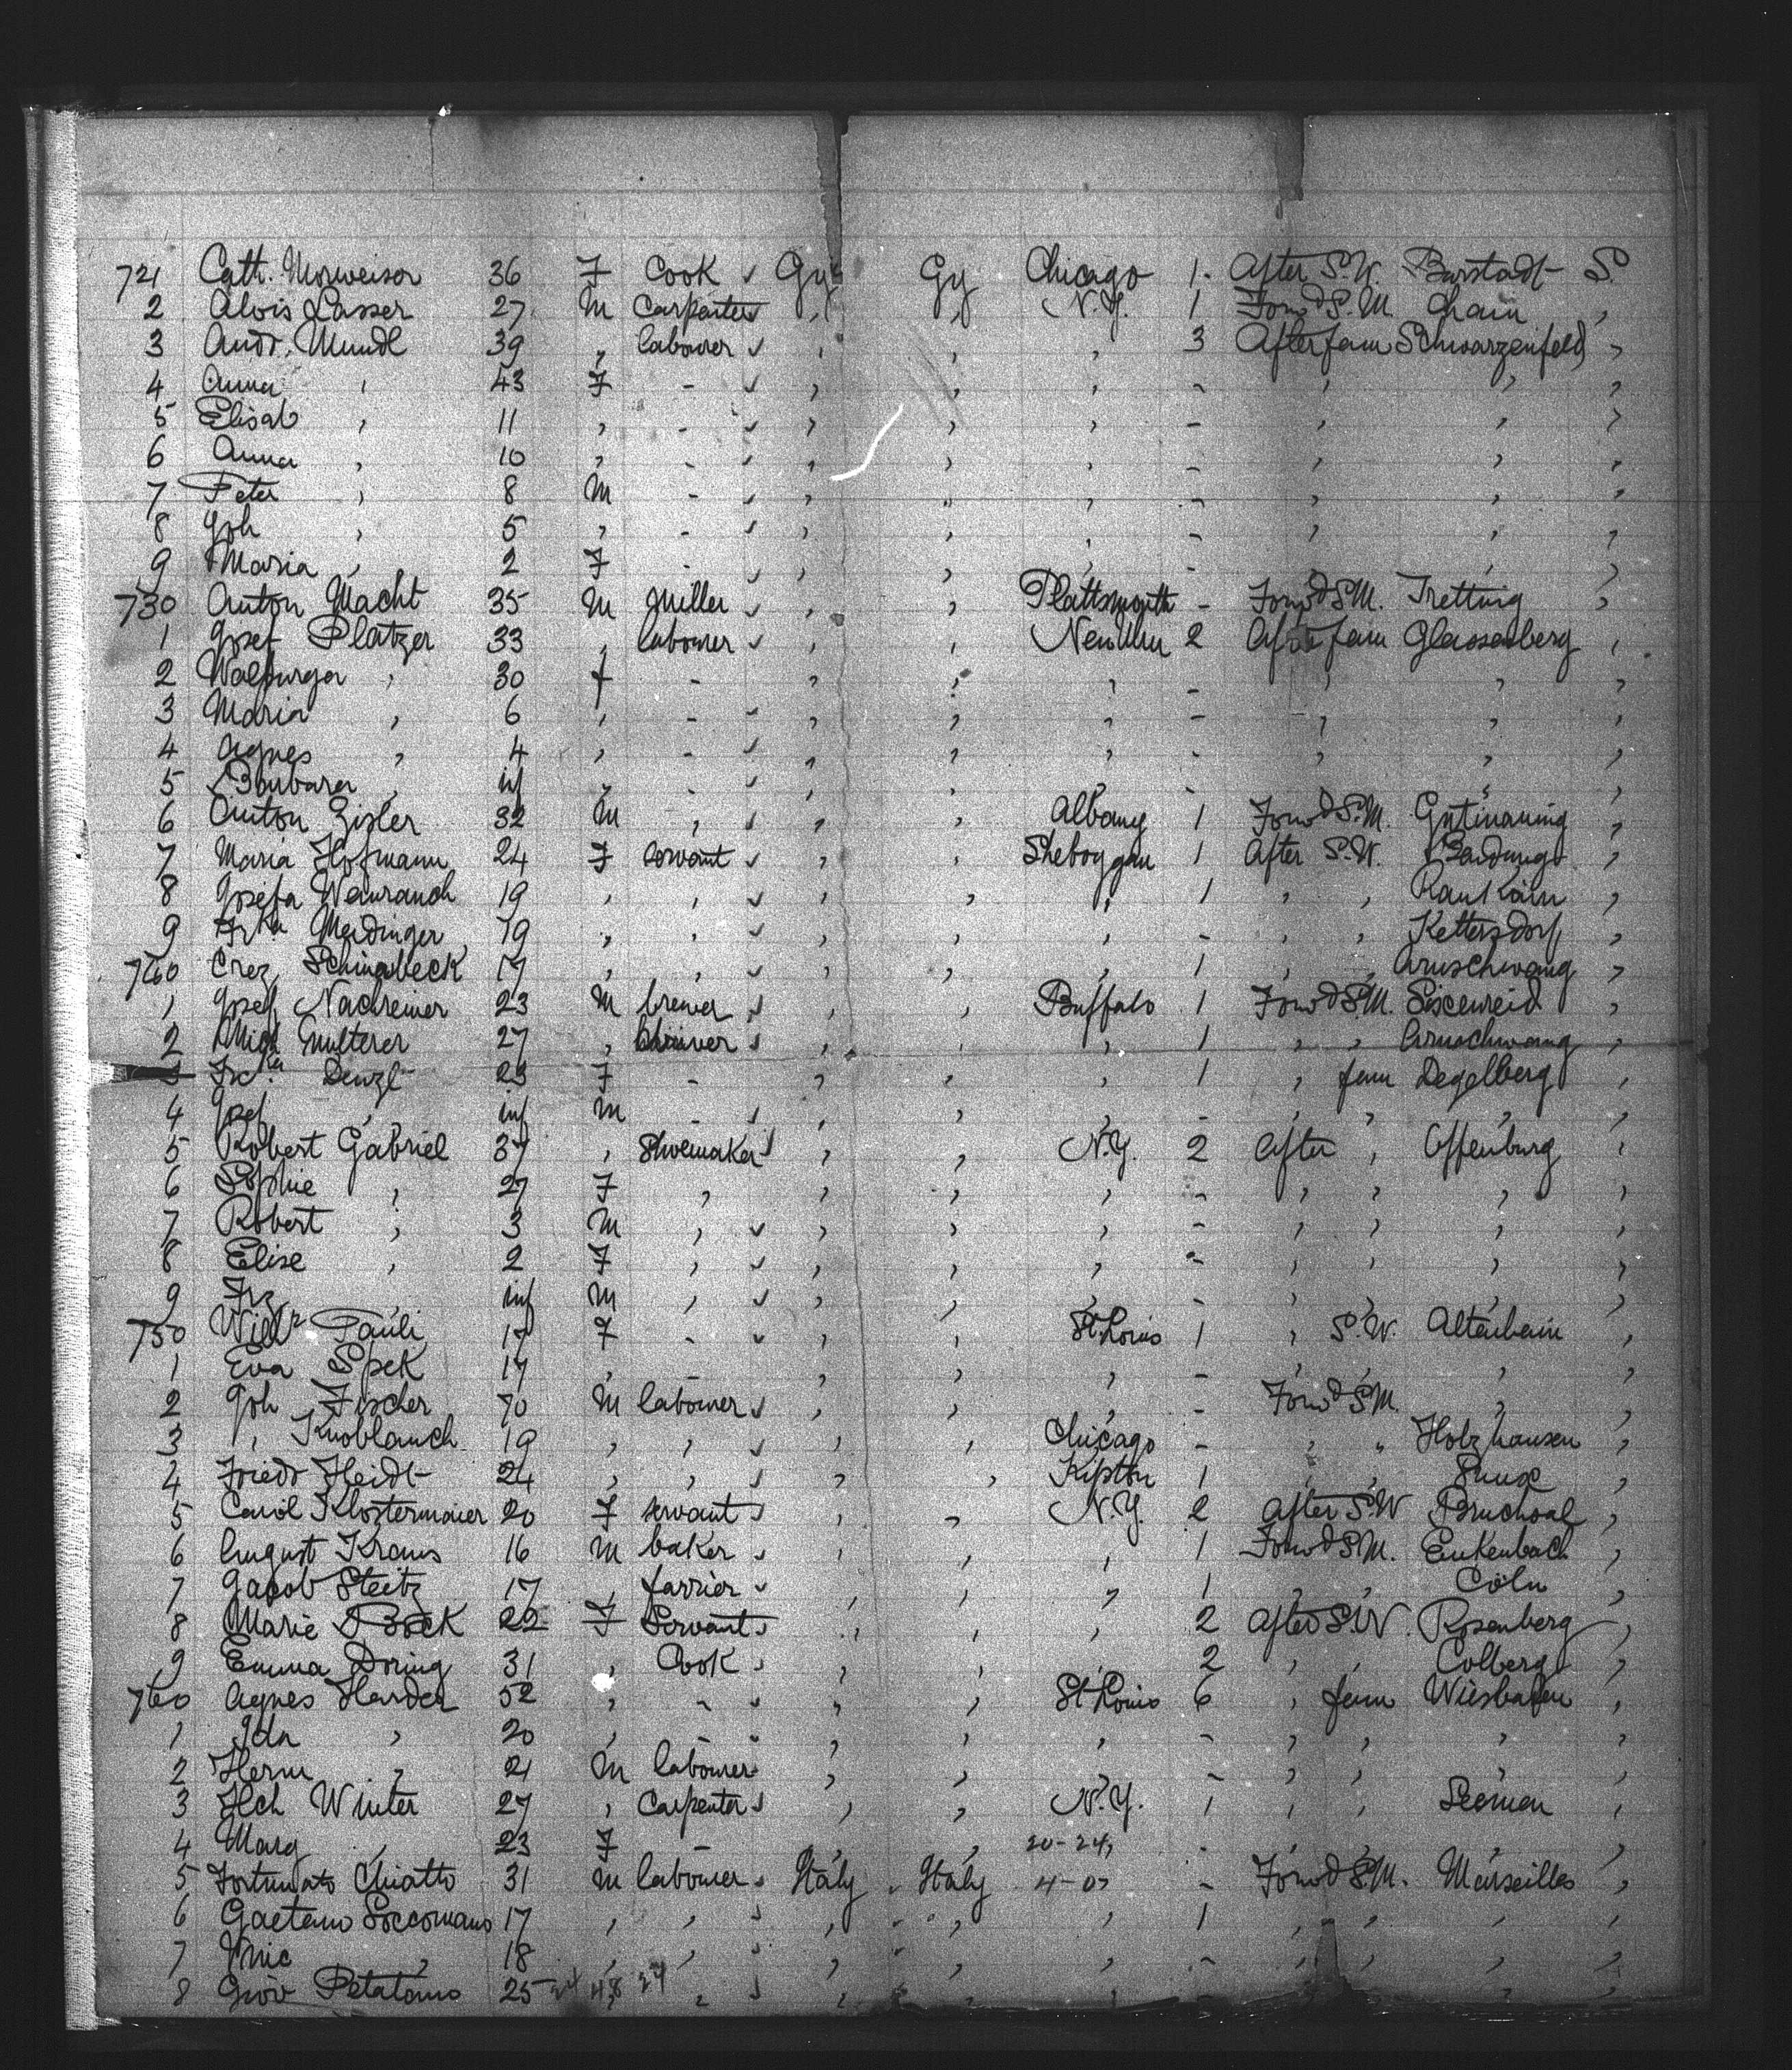 721 Cath. Morweiser 36 F Cook ✓ Gy Gy Chicago 1. After S.W. Burstadt S.
2 Alois Lasser 27 M Carpenter , , N.Y. 1 Forwd S.M. Cham ,
3 Andr. Mundl 39 , labourer ✓ , , , 3 After fam Schwarzenfeld ,
4 Anna , 43 F - ✓ , , , - , , ,
5 Elisab , 11 , - ✓ , , , - , , ,
6 Anna , 10 , - ✓ , , , - , , ,
7 Peter , 8 M - ✓ , , , - , , ,
8 Joh , 5 , - ✓ , , , - , , ,
9 Maria , 2 F - ✓ , , , - , , ,
730 Anton Macht 35 M Miller ✓ , , Plattsmouth - Forwd S.M. Tretting ,
1 Josef Platzer 33 , labourer ✓ , , New Ulm 2 After fam Glassenberg ,
2 Walburga , 30 f - , , , - , , ,
3 Maria , 6 , - ✓ , , , - , , ,
4 Agnes , 4 , - ✓ , , , - , , ,
5 Barbara , inf , - ✓ , , , - , , ,
6 Anton Zisler 32 M , ✓ , , Albany 1 Forwd S.M. ,
7 Maria Hofmann 24 F servant ✓ , , Sheboygan 1 After S.W. ,
8 Josefa 19 , , ✓ , , , 1 , , ,
9 Frka Maidinger 19 , , ✓ , , , - , , Kettersdorf ,
740 Crez. Schinabeck 17 , , ✓ , , , 1 , , Arnschwang ,
1 Josef Nachreiner 23 M brewer ✓ , , Buffalo 1 Forwd S.M. ,
2 Mich Multerer 27 , ✓ , , , 1 , , Arnschwang ,
3 Frcka Denzl 23 F - , , , 1 , fam Degelberg ,
4 Josef , inf M - ✓ , , , - , , , ,
5 Robert Gabriel 37 , Shoemaker ✓ , , N.Y. 2 After , Offenburg ,
6 Sophie , 27 F , , , , - , , , ,
7 Robert , 3 M , ✓ , , , - , , , ,
8 Elise , 2 F , ✓ , , , - , , , ,
9 Frz , inf M , ✓ , , , - , , , ,
750 Wilh Pauli 17 F - ✓ , , St Louis 1 , S.W. Altenhain ,
1 Eva Spek 17 , , , , - , , , ,
2 Joh Fischer 70 M labourer ✓ , , , - Forwd S.M. , ,
3 , Knoblauch 19 , , ✓ , , Chicago - , „ Holzhausen ,
4 Friedr Heidt 24 , , ✓ , , Kipton 1 , , ,
5 Carol Klostermaier 20 F servant ✓ , , N.Y. 2 After S.W Bruchsal ,
6 August Kraus 16 M baker ✓ , , , 1 Forwd S.M. Enkenbach ,
7 Jacob Steitz 17 , farrier ✓ , , , 1 , , Cöln ,
8 Marie Bock 22 F Servant ✓ , , , 2 After S.W. Rosenberg ,
9 Emma Doring 31 , Cook ✓ , , , 2 , , Colberg ,
760 Agnes Harder 52 , - ✓ , , St Louis 6 , fam Wiesbaden ,
1 Ida , 20 , - ✓ , , , - , , , ,
2 Herm , 21 M labourer ✓ , , , - , , , ,
3 Hch Winter 27 , Carpenter ✓ , , N.Y. 1 , , ,
4 Marg , 23 F - , , 20-24, - , , , ,
5 Fortunato Chiatto 31 M labourer ✓ Italy Italy 4-0, - Forwd S.M. Marseilles ,
6 Gaetano Soccomano 17 , , ✓ , , , 1 , , , ,
7 , 18 , , ✓ , , , - , , , ,
8 Giov Petalano 25 24 48 24 , ✓ , , , - , , , ,